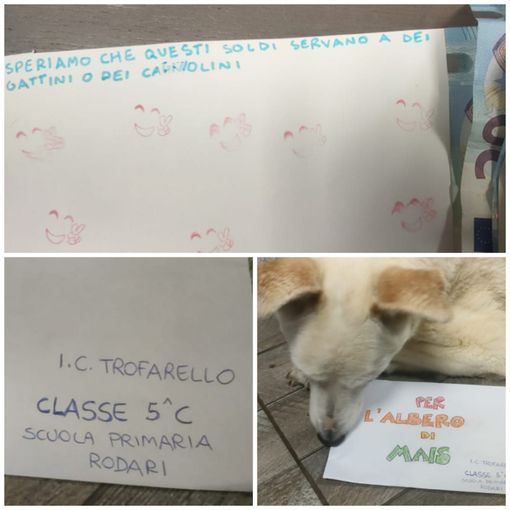 SPERIAMO CHE QUESTI SOLDI SERVANO A DEI
GATTINI O DEI CAGNOLINI
I.C. TROFARELLO
CLASSE 5^C
SCUOLA PRIMARIA
RODARI
PER
L'ALBERO
DI
MAIS
I.C. TROFARELLO
CLASSE 5^
SCUOLA PRIMAR
RODARI